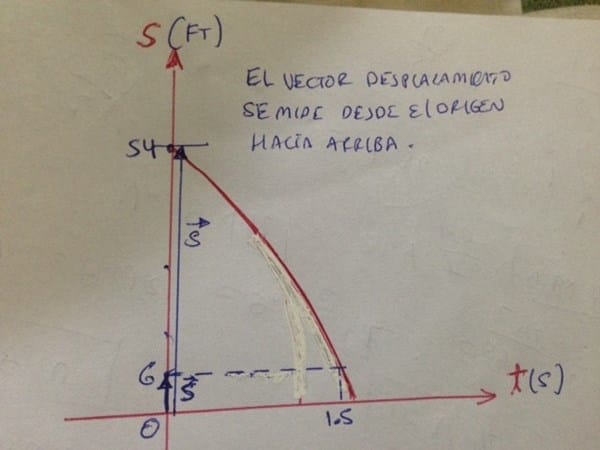 S (FT)
EL VECTOR DESPLAZAMIENTO
SE MIDE DESDE El ORIGEN
HACIA ARRIBA.
54
S
6
S
t(s)
0
1.5